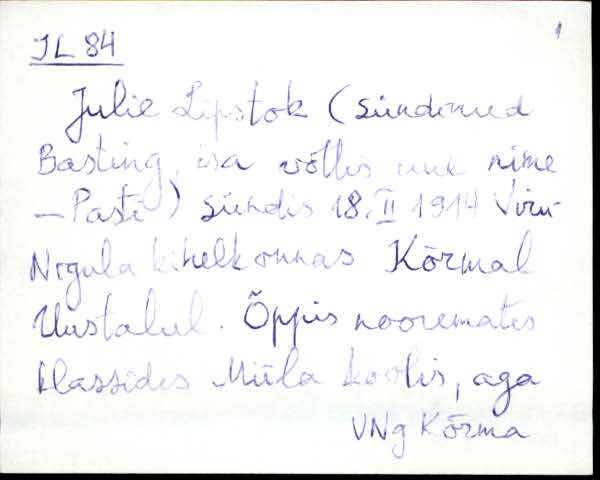 JL 84
1
Julie Lipstok (sündinud
Basting, isa võttis uue nime
— Pasti) sündis 18. II 1914 Viru-
Nigula kihelkonnas Kõrmal
Uustalul. Õppis nooremates
klassides Miila koolis, aga
VNg Kõrma